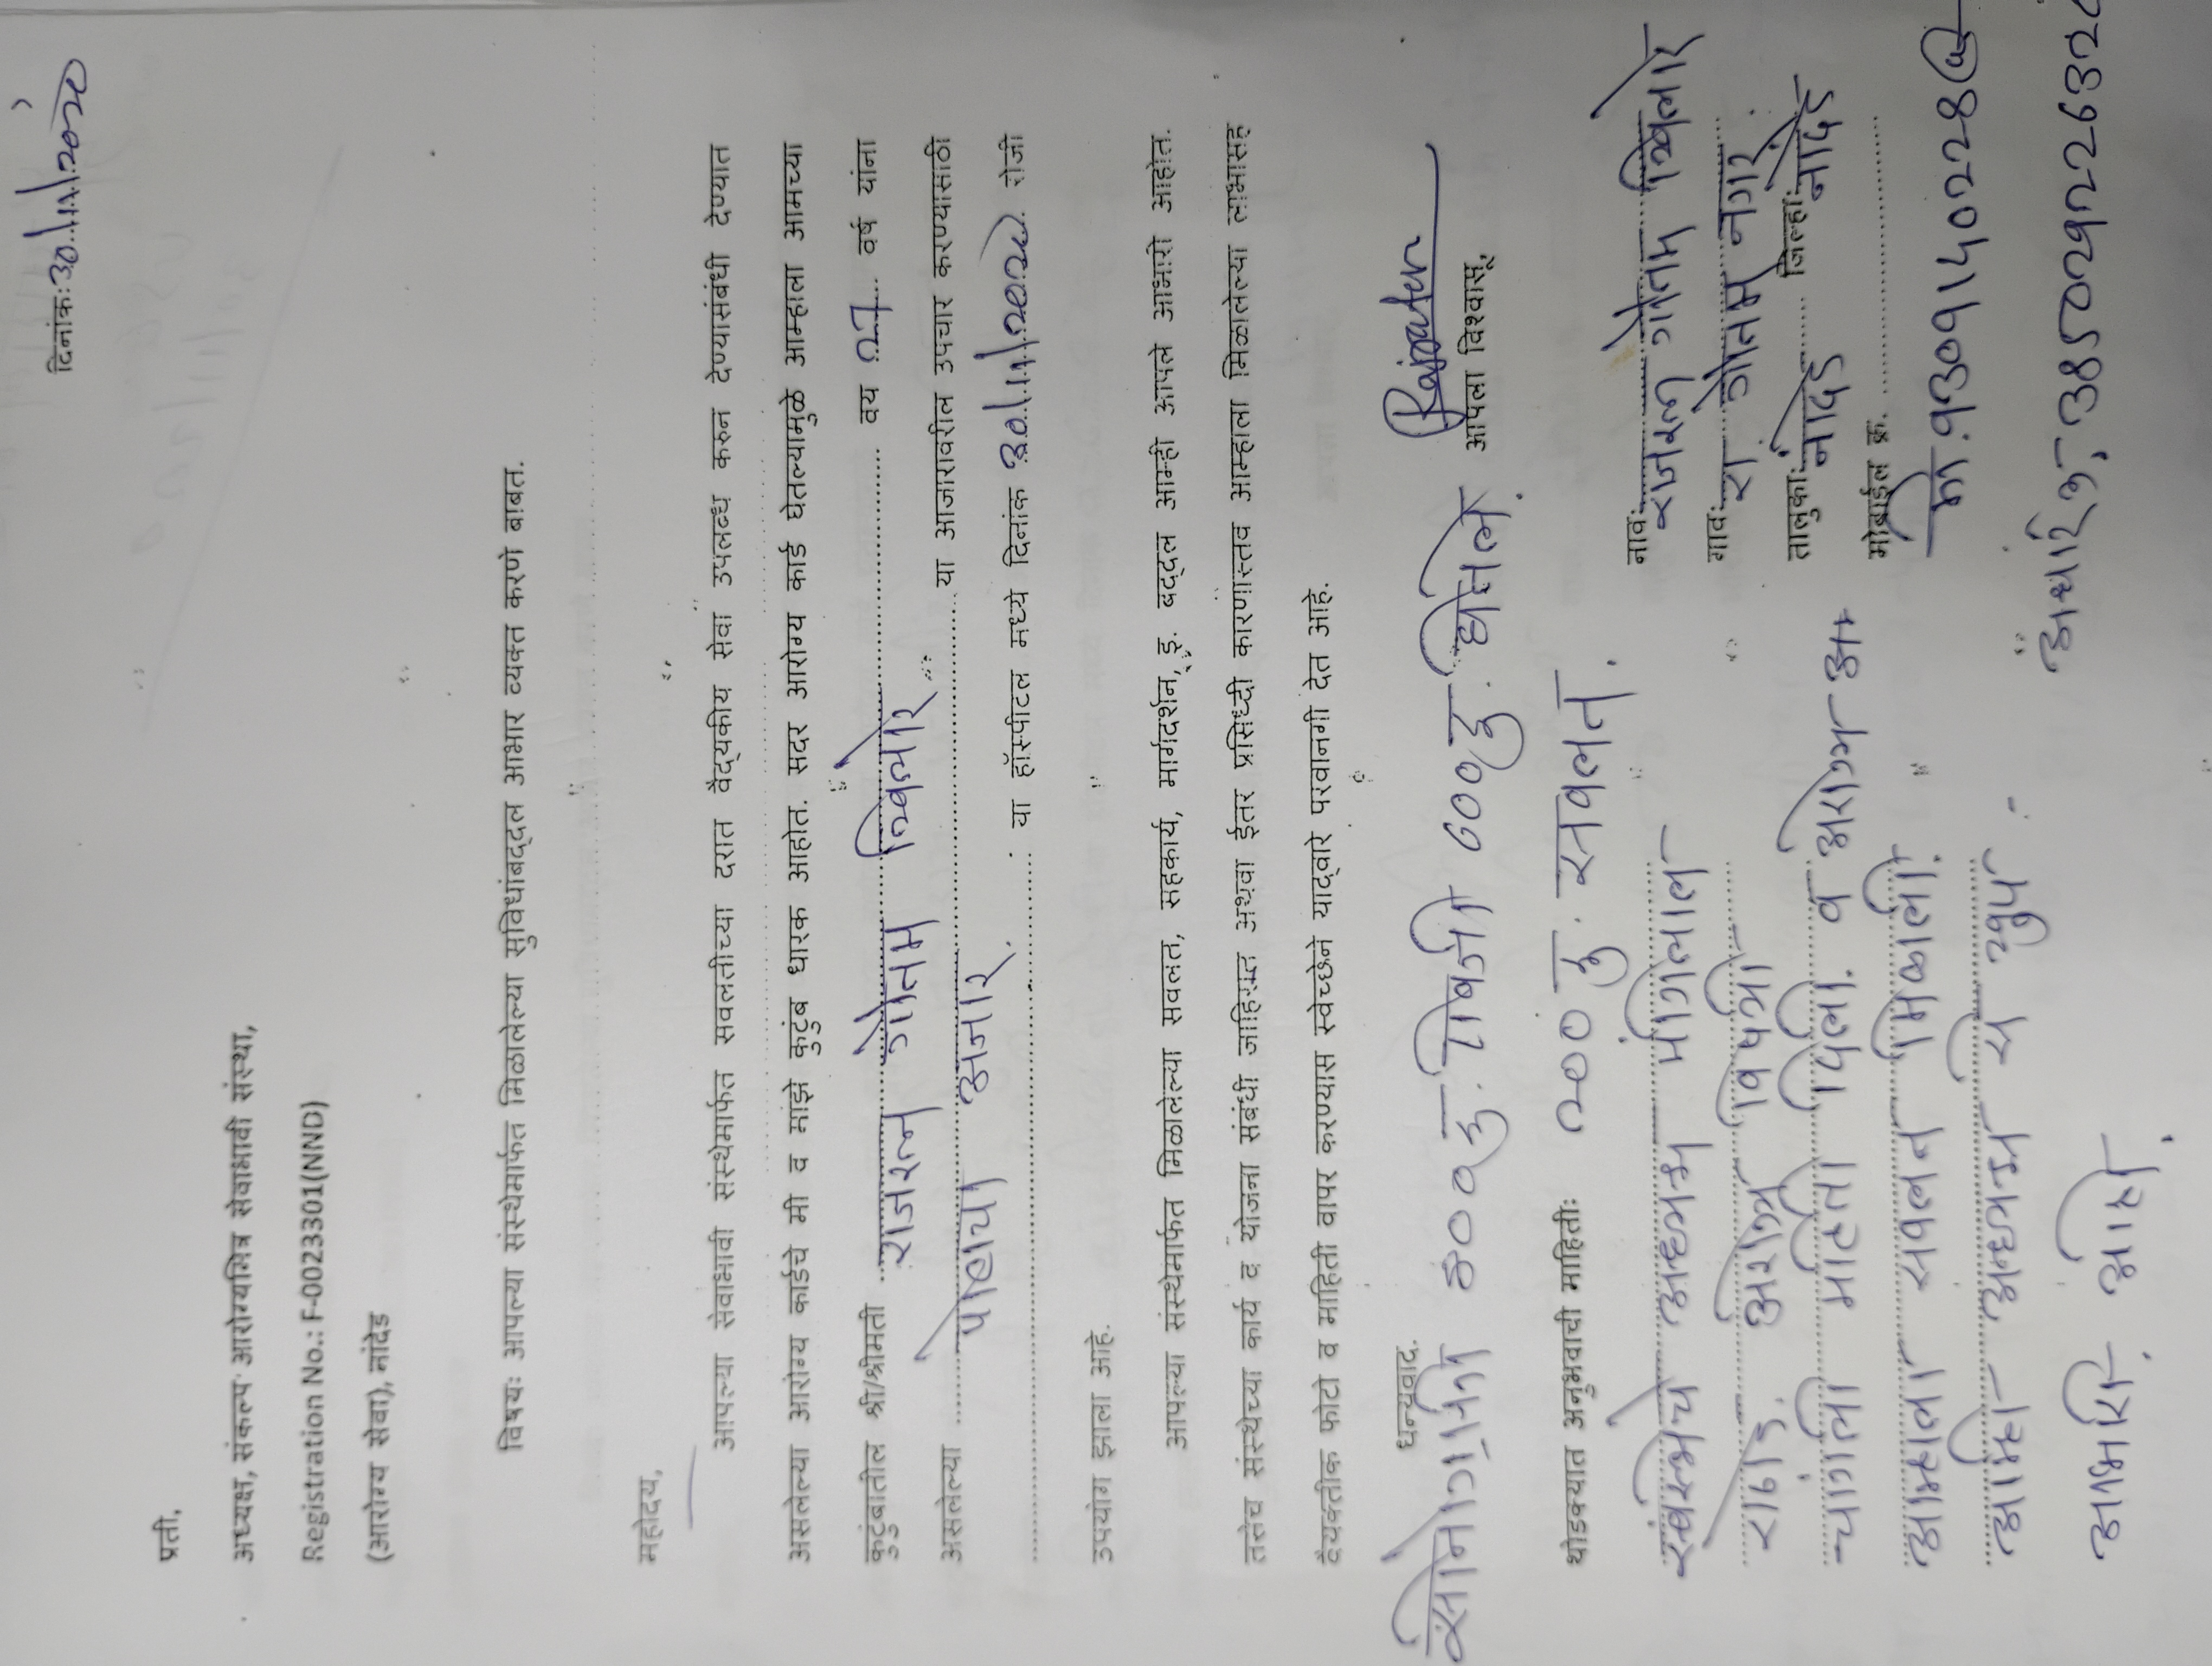 दिनांक: 30/11/2020
प्रती,
अध्यक्ष, संकल्प आरोग्यमित्र सेवाभावी संस्था,
Registration No.: F-0023301(NND)
(आरोग्य सेवा), नांदेड
विषयः आपल्या संस्थेमार्फत मिळालेल्या सुविधांबद्दल आभार व्यक्त करणे बाबत.
महोदय,
आपल्या सेवाभावी संस्थेमार्फत सवलतीच्या दरात वैद्यकीय सेवा उपलब्ध करुन देण्यासंबंधी देण्यात
असलेल्या आरोग्य कार्डचे मी व माझे कुटुंब धारक आहोत. सदर आरोग्य कार्ड घेतल्यामुळे आम्हाला आमच्या
कुटुंबातील श्री/श्रीमती राजरत्न गौतम वय 27 वर्ष यांना
असलेल्या पायाचा आजार या आजारावरील उपचार करण्यासाठी
या हॉस्पीटल मध्ये दिनांक 30/11/2020 रोजी
उपयोग झाला आहे.
आपल्या संस्थेमार्फत मिळालेल्या सवलत, सहकार्य, मार्गदर्शन, इ. बद्दल आम्ही आपले आभारी आहोत.
तसेच संस्थेच्या कार्य व योजना संबंधी जाहिरात अथवा ईतर प्रसिध्दी कारणास्तव आम्हाला मिळालेल्या लाभासह
वैयक्तीक फोटो व माहिती वापर करण्यास स्वेच्छेने याद्वारे परवानगी देत आहे.
धन्यवाद.
सोनोग्राफी 800 रु. होतील
आपला विश्वासू,
थोडक्यात अनुभवाची माहितीः 200 रु. सवलत.
नावः राजरत्न गौतम
गावः रा गौतम नगर
तालुकाः नांदेड जिल्हाः नांदेड
मोबाईल क्र.
मो.
संस्थेचे अनुभव चांगलाल
राठोड
चांगली माहिती दिली. व आरोग्य
आम्हाला सवलत मिळाली.
आम्ही अनुभव चे खुप
आभारी आहोत.
आधार क्र.